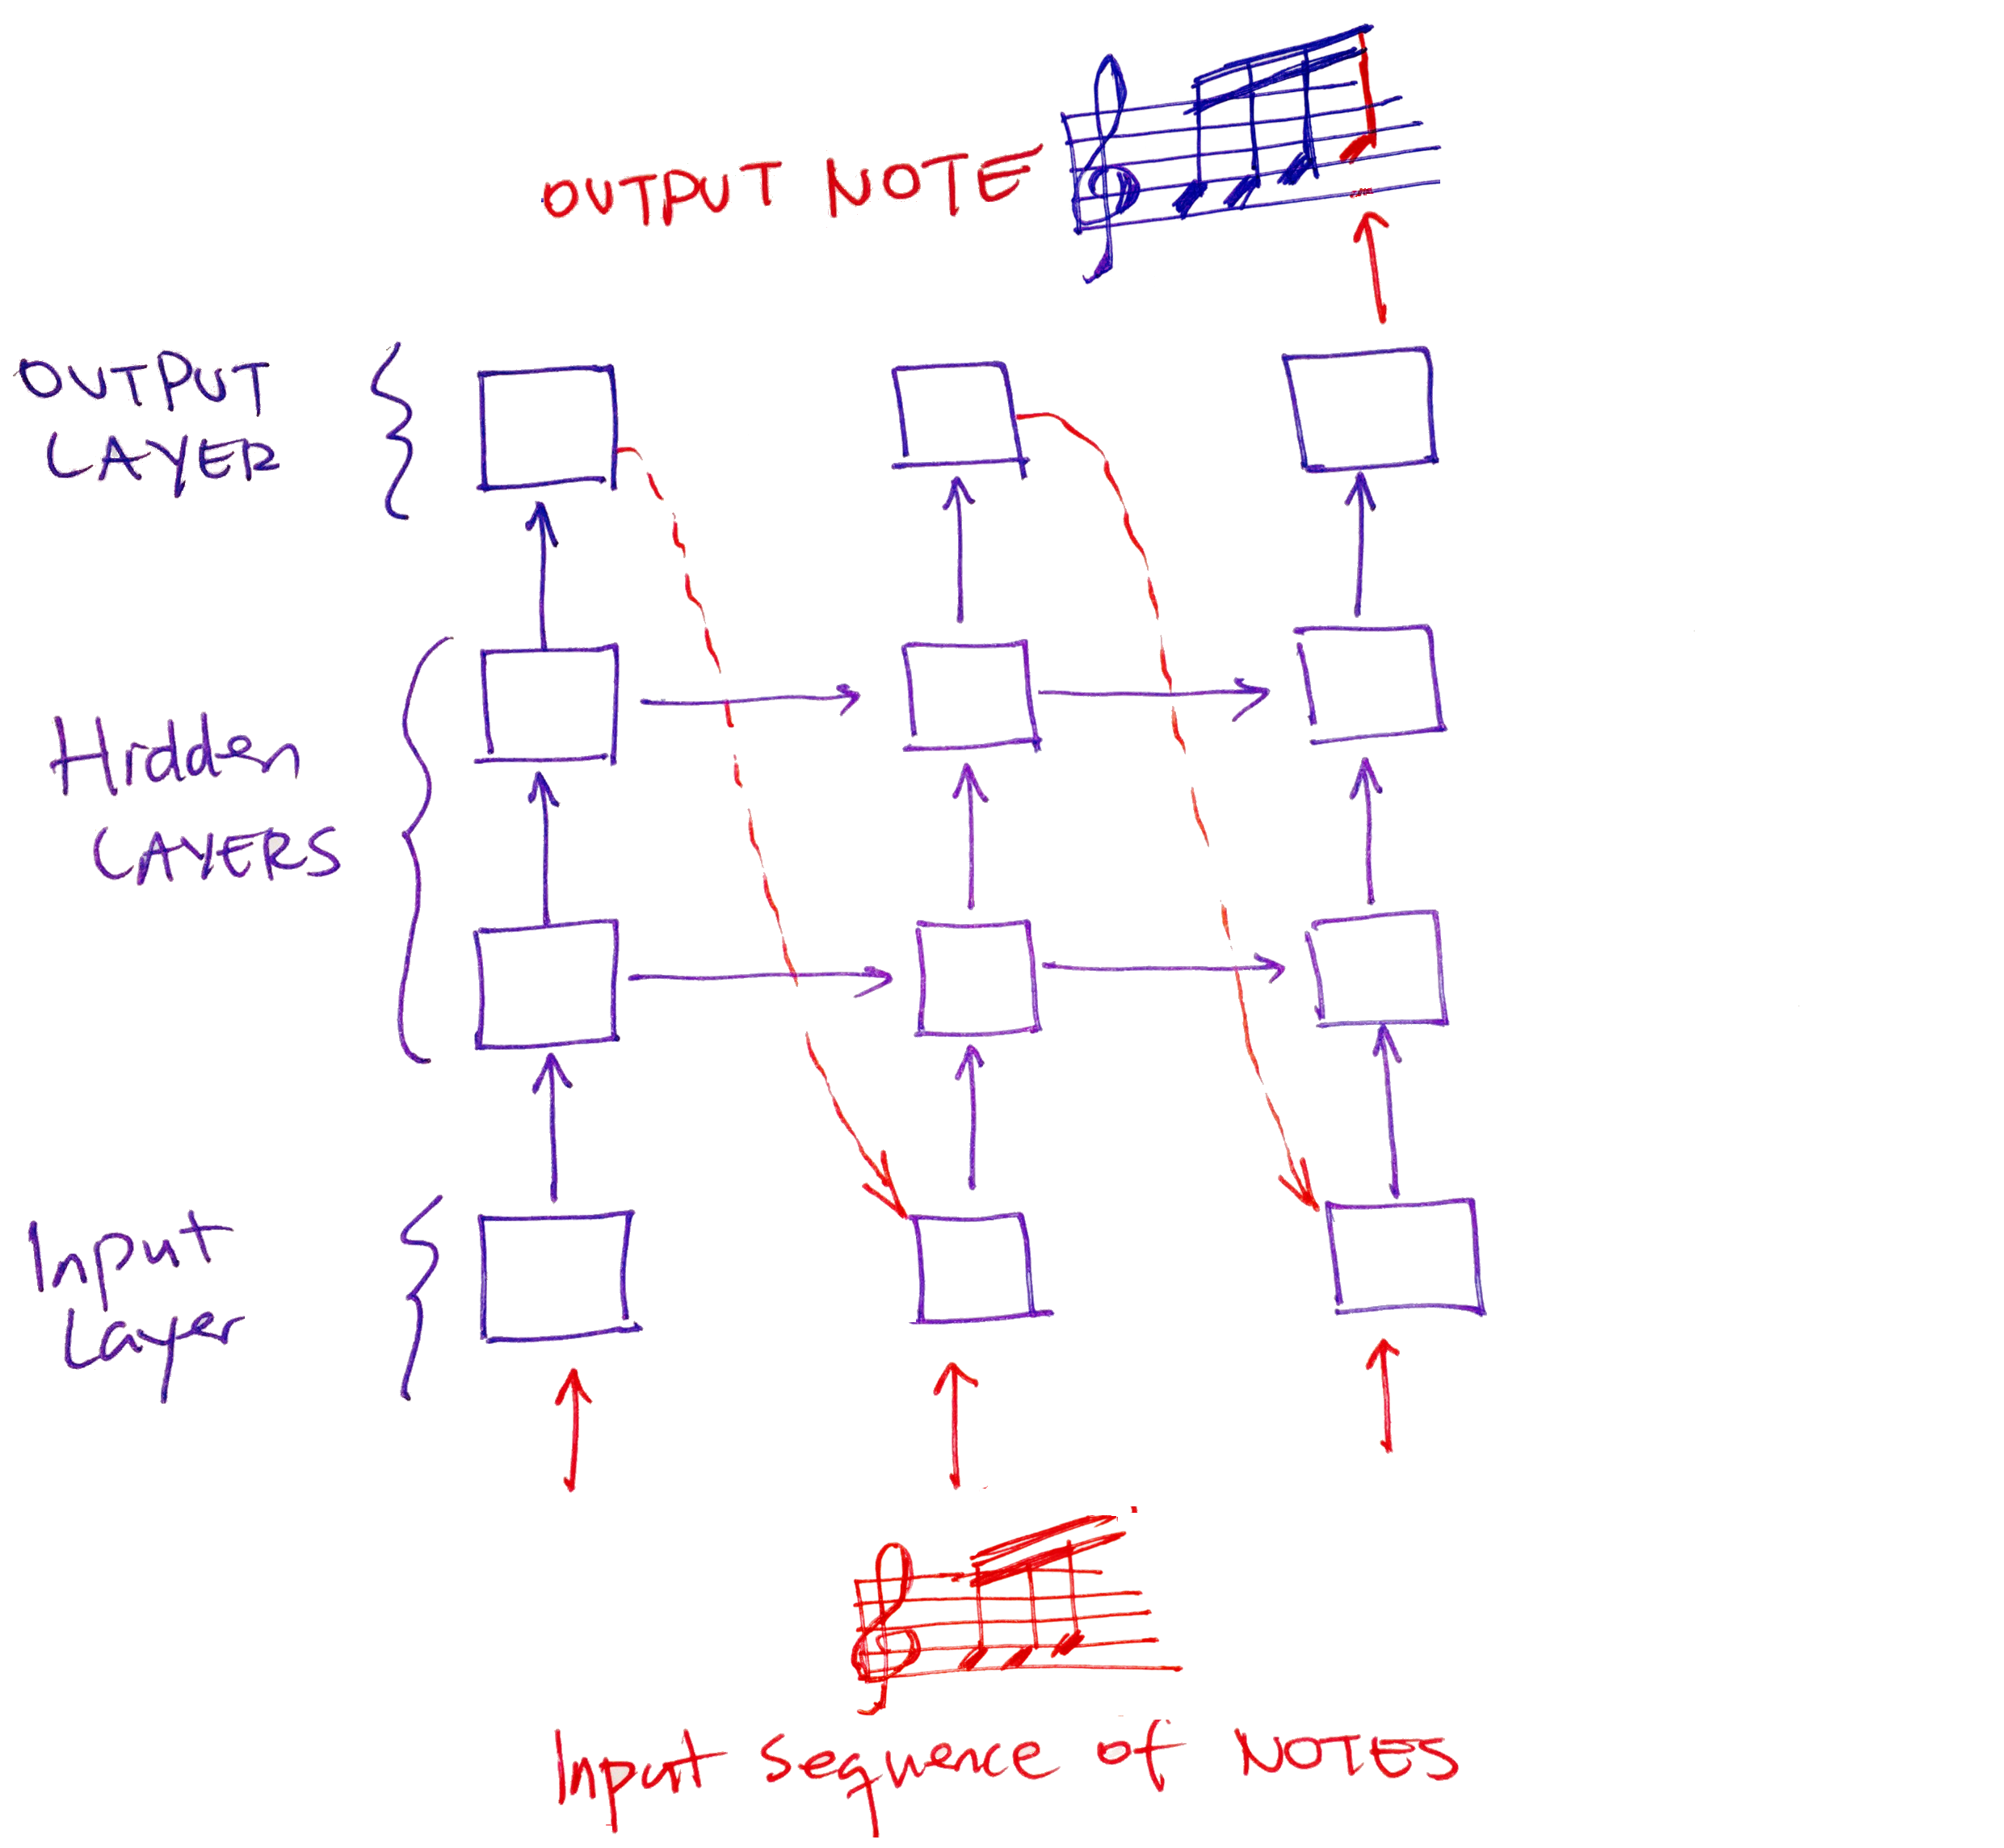 OUTPUT NOTE
OUTPUT
LAYER
Hidden
LAYERS
Input
Layer
Input sequence of NOTES